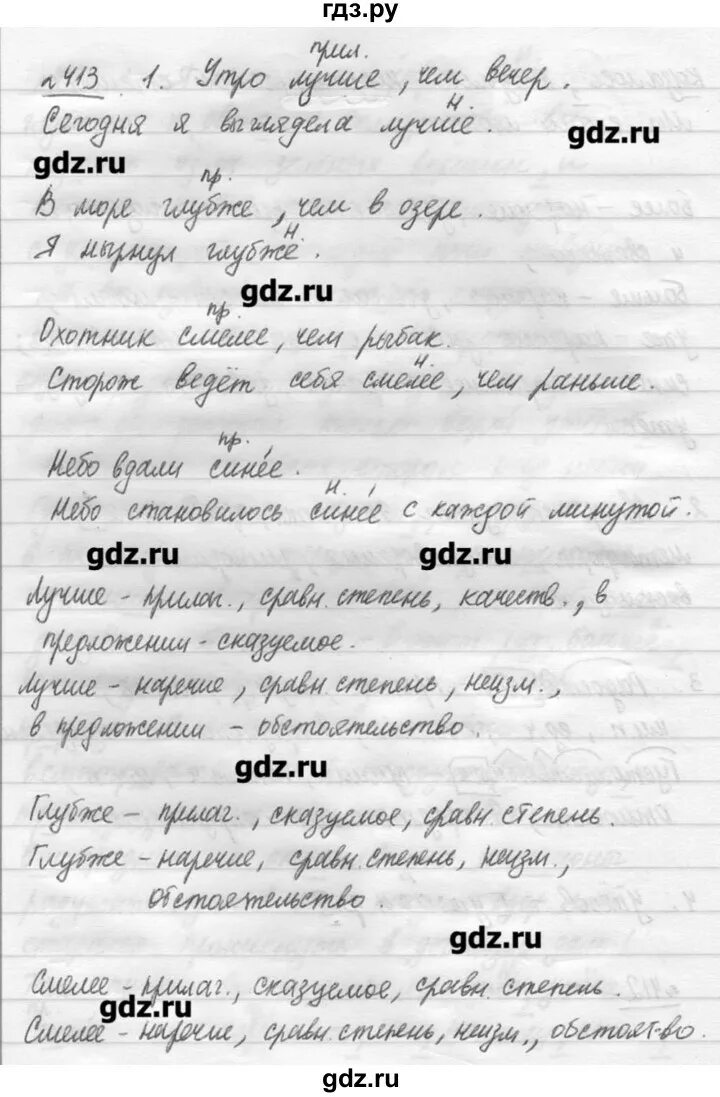 гдз.ру
прил.
№413. 1. Утро лучше, чем вечер.
н
Сегодня я выглядела лучше.
gdz.ru
gdz.ru
пр.
В море глубже, чем в озере.
н
Я нырнул глубже.
gdz.ru
пр.
Охотник смелее, чем рыбак.
н
Сторож ведёт себя смелее, чем раньше.
пр.
Небо вдали синее.
н
Небо становилось синее с каждой минутой.
gdz.ru
gdz.ru
Лучше - прилаг., сравн. степень, качеств., в
предложении - сказуемое.
Лучше - наречие, сравн. степень, неизм.,
в предложении - обстоятельство.
gdz.ru
Глубже - прилаг., сказуемое, сравн. степень.
Глубже - наречие, сравн. степень, неизм.,
обстоятельство.
gdz.ru
Смелее - прилаг., сказуемое, сравн. степень.
gdz.ru
Смелее - наречие, сравн. степень, неизм., обстоят-во.
gdz.ru